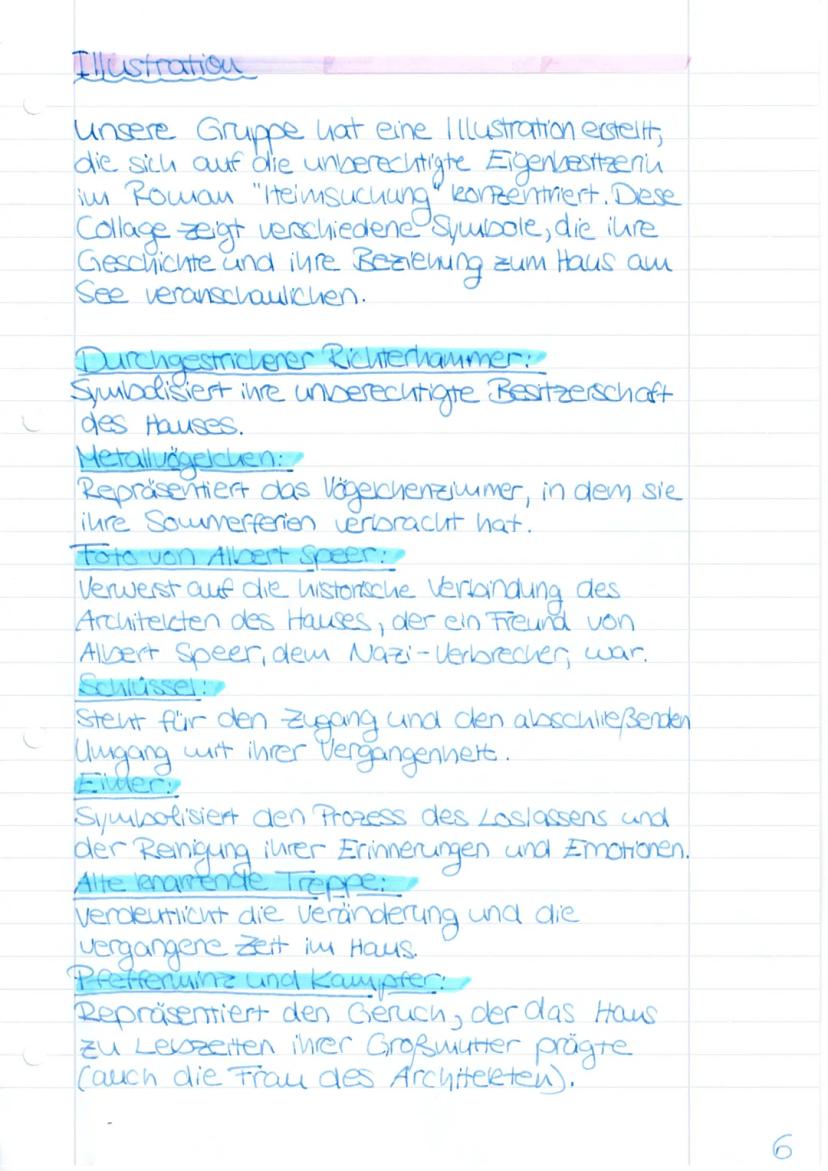 Illustration
Unsere Gruppe hat eine Illustration erstellt,
die sich auf die unberechtigte Eigenbesitzerin
im Roman "Heimsuchung" konzentriert. Diese
Collage zeigt verschiedene Symbole, die ihre
Geschichte und ihre Beziehung zum Haus am
See veranschaulichen.
Durchgestrichener Richterhammer:
Symbolisiert ihre unberechtigte Besitzerschaft
des Hauses.
Metallvögelchen:
Repräsentiert das Vögelchenzimmer, in dem sie
ihre Sommerferien verbracht hat.
Foto von Albert Speer:
Verweist auf die historische Verbindung des
Architekten des Hauses, der ein Freund von
Albert Speer, dem Nazi-Verbrecher, war.
Schlüssel:
Steht für den Zugang und den abschließenden
Umgang mit ihrer Vergangenheit.
Eimer:
Symbolisiert den Prozess des Loslassens und
der Reinigung ihrer Erinnerungen und Emotionen.
Alte knarrende Treppe:
Verdeutlicht die Veränderung und die
vergangene Zeit im Haus.
Pfefferminz und Kampfer:
Repräsentiert den Geruch, der das Haus
zu Lebzeiten ihrer Großmutter prägte
(auch die Frau des Architekten).
6